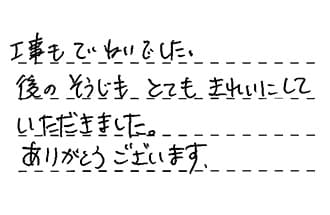 工事もていねいでした。
後のそうじも とても きれいにして
いただきました。
ありがとうございます。